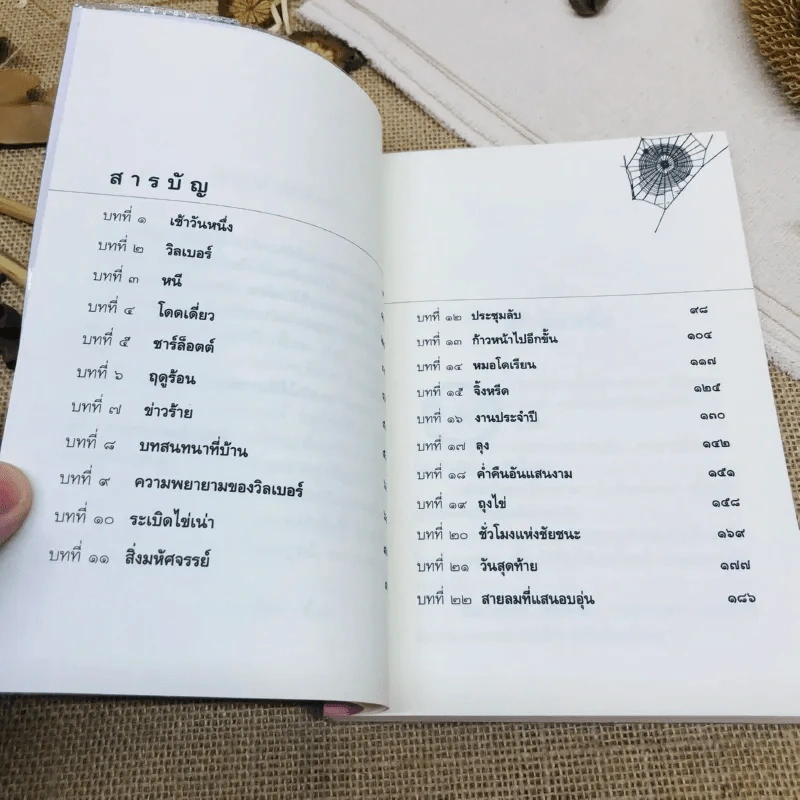 สารบัญ
บทที่ ๑ เช้าวันหนึ่ง
บทที่ ๒ วิลเบอร์
บทที่ ๓ หนี
บทที่ ๔ โดดเดี่ยว
บทที่ ๕ ชาร์ล็อตต์
บทที่ ๖ ฤดูร้อน
บทที่ ๗ ข่าวร้าย
บทที่ ๘ บทสนทนาที่บ้าน
บทที่ ๙ ความพยายามของวิลเบอร์
บทที่ ๑๐ ระเบิดไข่เน่า
บทที่ ๑๑ สิ่งมหัศจรรย์
บทที่ ๑๒ ประชุมลับ ๙๘
บทที่ ๑๓ ก้าวหน้าไปอีกขั้น ๑๐๔
บทที่ ๑๔ หมอโดเรียน ๑๑๗
บทที่ ๑๕ จิ้งหรีด ๑๒๕
บทที่ ๑๖ งานประจำปี ๑๓๐
บทที่ ๑๗ ลุง ๑๔๒
บทที่ ๑๘ ค่ำคืนอันแสนงาม ๑๕๑
บทที่ ๑๙ ถุงไข่ ๑๕๘
บทที่ ๒๐ ชั่วโมงแห่งชัยชนะ ๑๖๙
บทที่ ๒๑ วันสุดท้าย ๑๗๗
บทที่ ๒๒ สายลมที่แสนอบอุ่น ๑๘๖